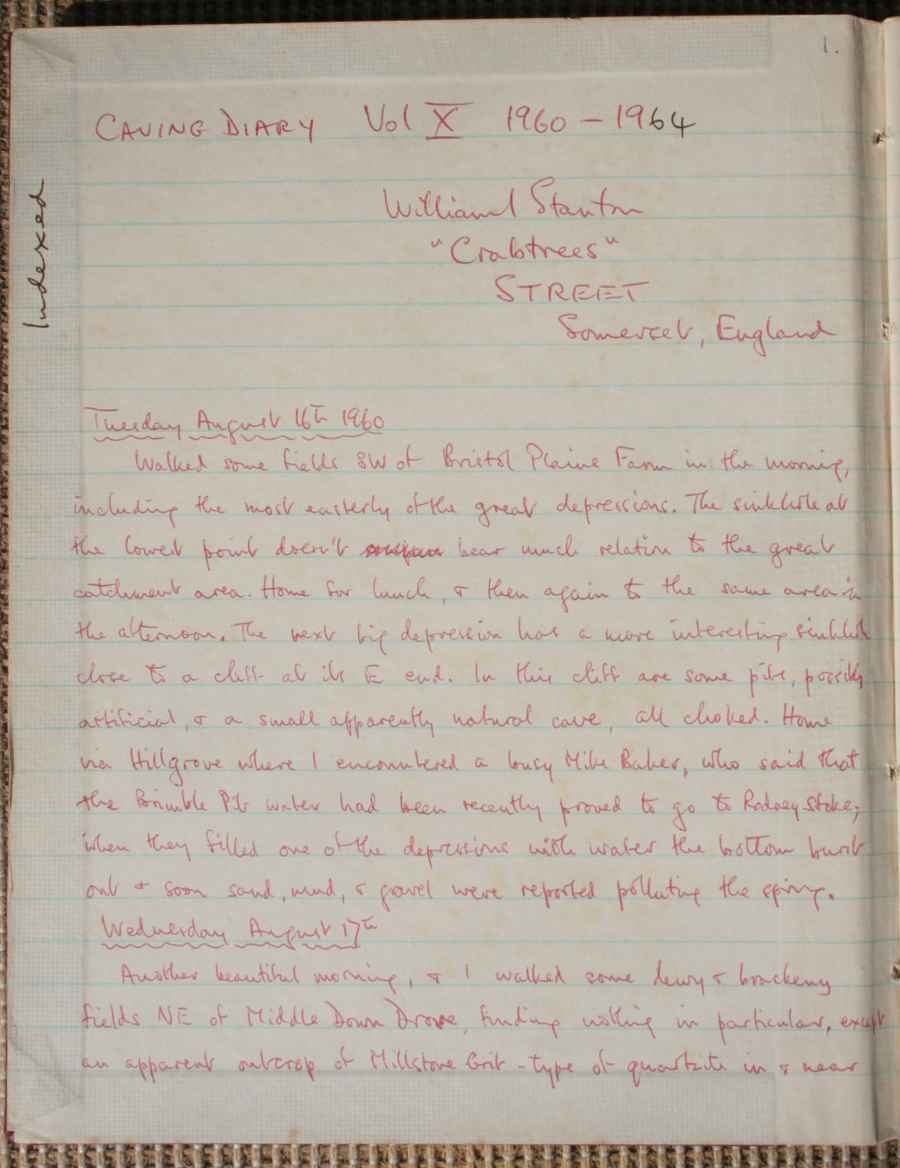 1.
CAVING DIARY Vol X 1960 - 1964
Indexed
William I Stanton
"Crabtrees"
STREET
Somerset, England
Tuesday August 16th 1960
Walked some fields SW of Bristol Plain Farm in the morning,
including the most easterly of the great depressions. The sinkhole at
the lowest point doesn't bear much relation to the great
catchment area. Home for lunch, & then again to the same area in
the afternoon. The next big depression has a more interesting sinkhole
close to a cliff at its E end. In this cliff are some pits, possibly
artificial, & a small apparently natural cave, all choked. Home
via Hillgrove where I encountered a busy Mike Baker, who said that
the Brimble Pit water had been recently proved to go to Rodney Stoke;
when they filled one of the depressions with water the bottom burst
out & soon sand, mud, & gravel were reported polluting the spring.
Wednesday August 17th
Another beautiful morning, & I walked some dewy & brackeny
fields NE of Middle Down Drove, finding nothing in particular, except
an apparent outcrop of Millstone Grit-type of quartzite in & near